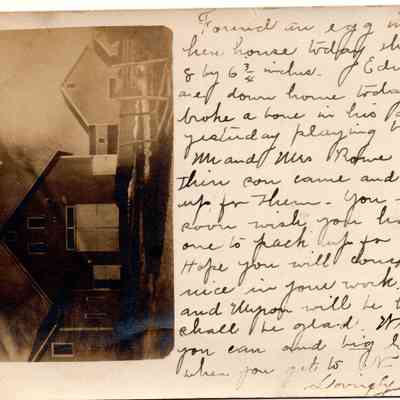 Found an egg in
hen house today
8 by 6 3/4 inches. Ed
are down home today
broke a bone in his
yesterday playing
Mr and Mrs Rowe
Their son came and
up for them. You
soon wish you
one to pack up for
Hope you will
nice in your work.
and Myron will be
shall be glad.
you can and big
when you get to N
Lovingly